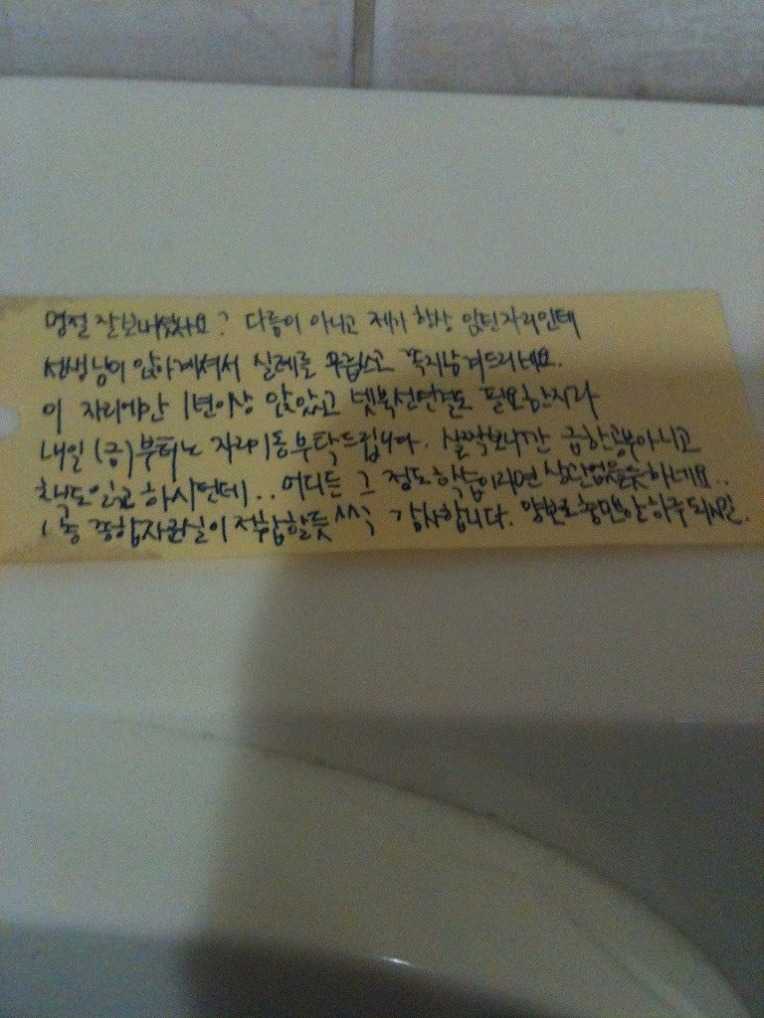 명절 잘보내셨나요? 다름이 아니고 제가 항상 앉던자리인데
선생님이 앉아계셔서 실례를 무릅쓰고 쪽지남겨드리네요.
이 자리에만 1년이상 앉았고 넷북선연결도 필요한지라
내일(금)부터는 자리이동부탁드립니다. 살짝보니깐 급한공부아니고
책도읽고 하시던데.. 어디든 그 정도학습이라면 상관없을듯하네요..
1층 종합자료실이 적합할듯^^; 감사합니다. 양보로충만한하루되시길.